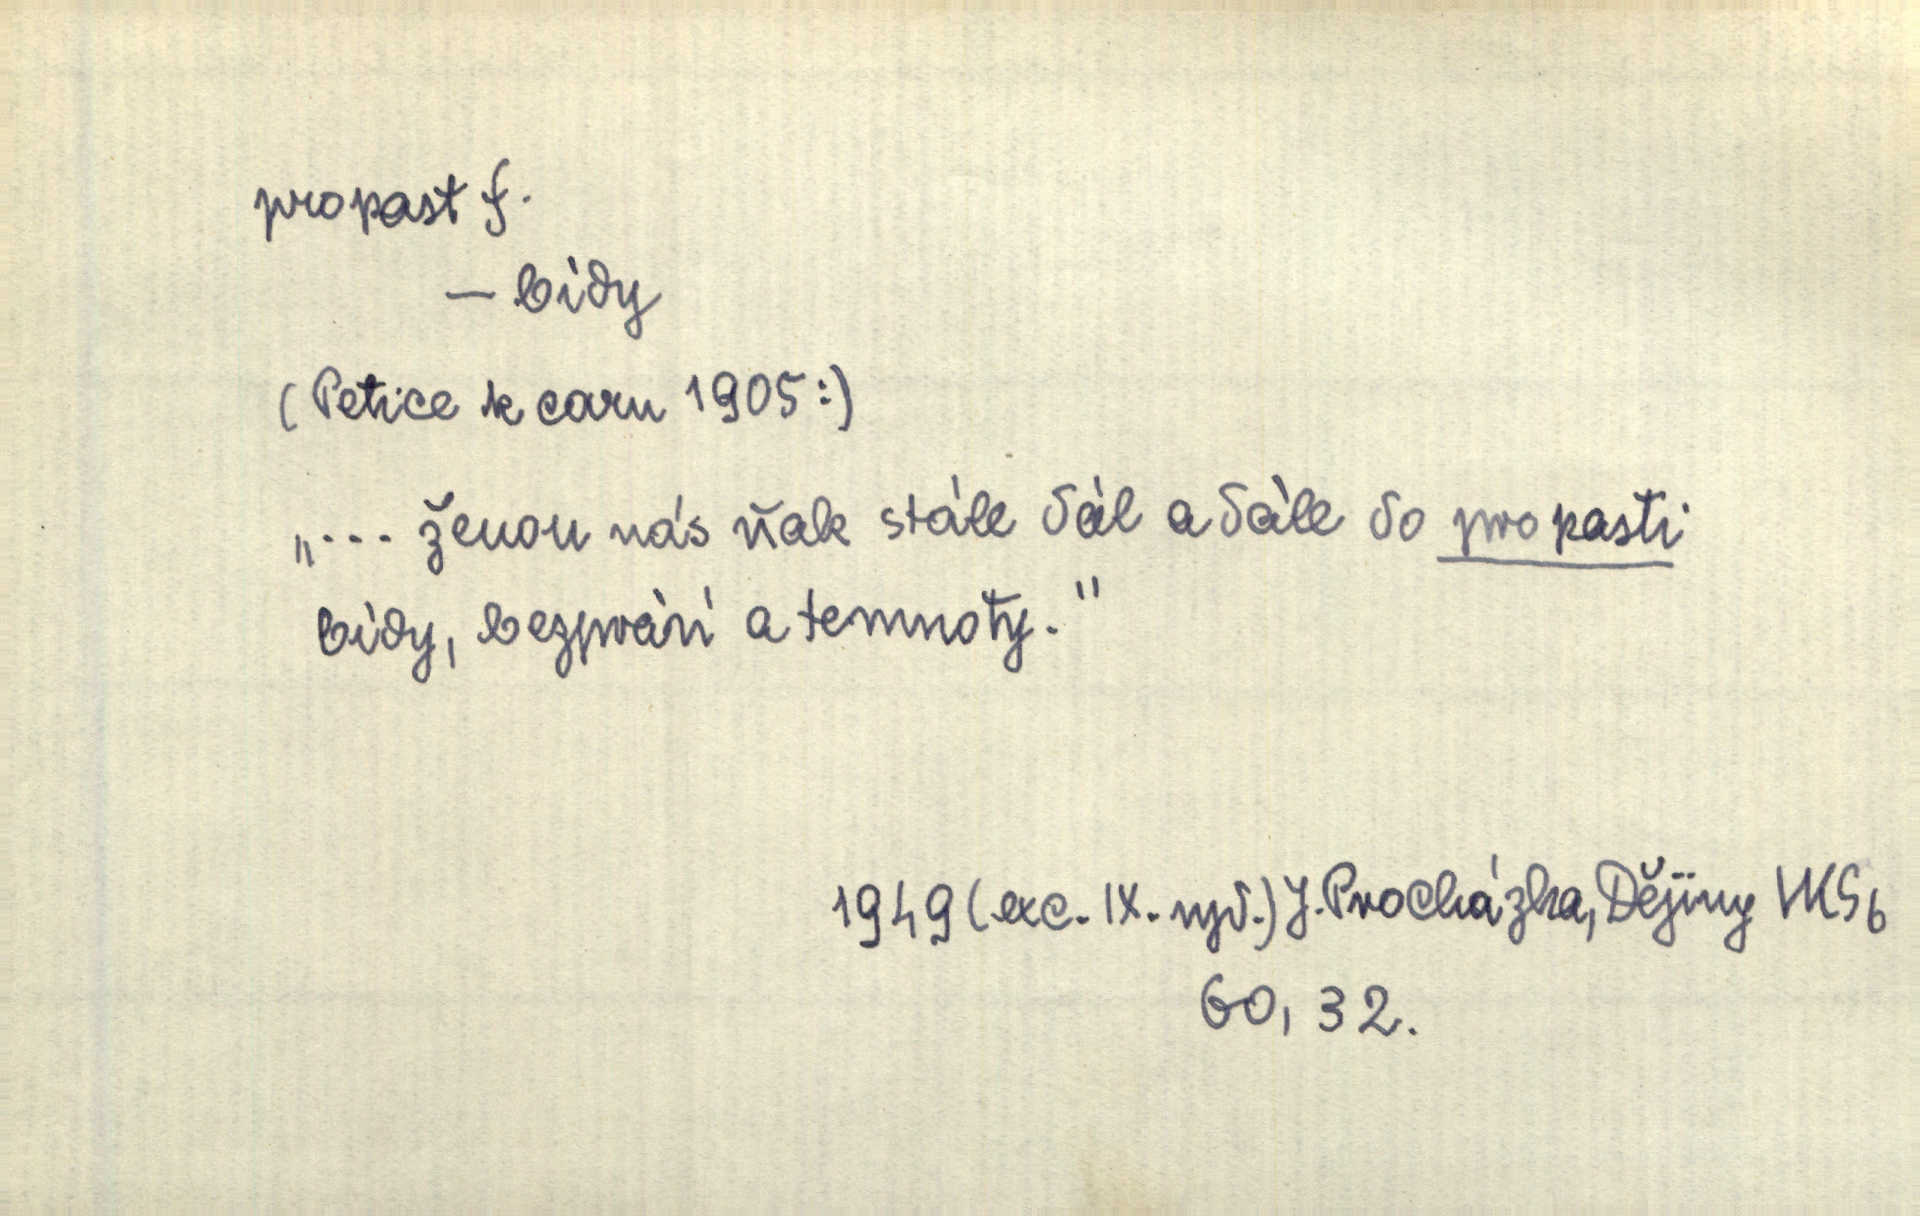 propast f.
— bídy
(Petice k caru 1905:)
„... ženou nás však stále dál a dále do propasti
bídy, bezpráví a temnoty."
1949 (exc. IX. vyd.) J. Procházka, Dějiny VKSb
60, 32.